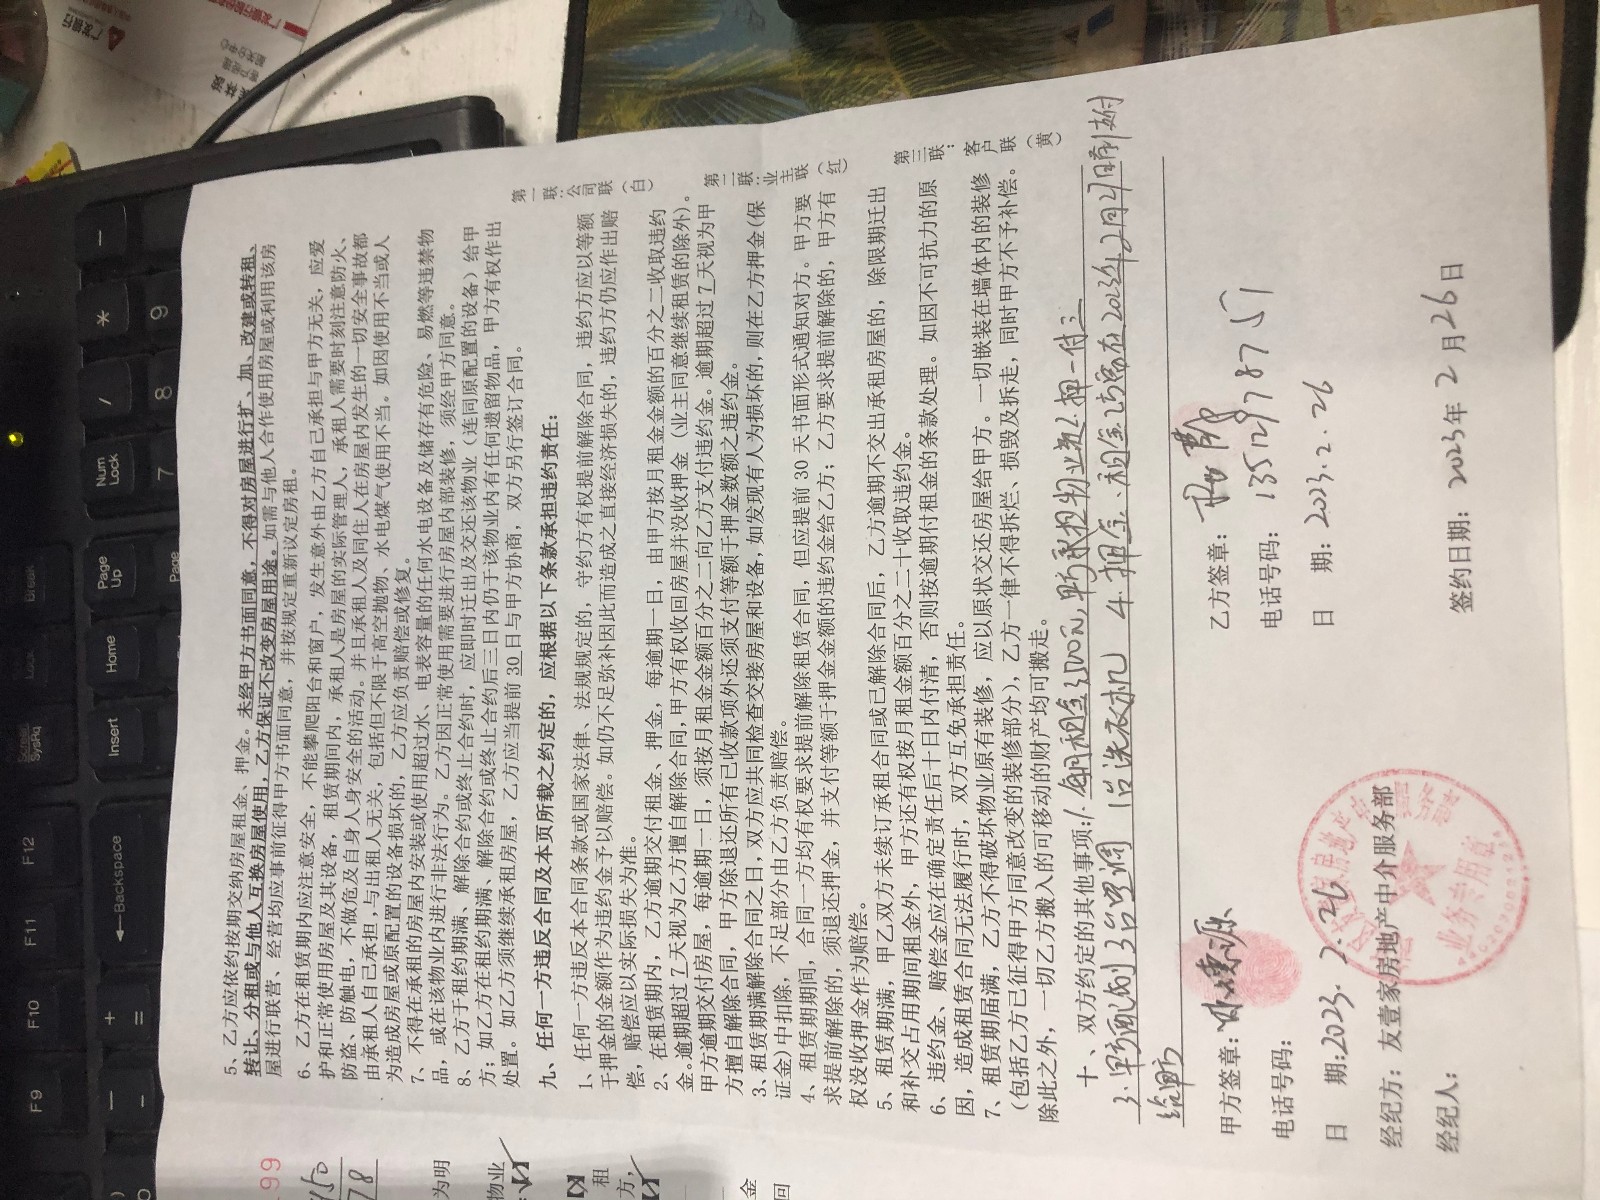 5、乙方应依约按期交纳房屋租金、押金。未经甲方书面同意，不得对房屋进行扩、加、改建或转租、
转让、分租或与他人互换房屋使用，乙方保证不改变房屋用途。如需与他人合作使用房屋或利用该房
屋进行联营、经营均应事前征得甲方书面同意，并按规定重新议定房租。
6、乙方在租赁期内应注意安全，不能攀爬阳台和窗户，发生意外由乙方自己承担与甲方无关，应爱
护和正常使用房屋及其设备，租赁期间内，承租人是房屋的实际管理人，承租人需要时刻注意防火、
防盗、防触电，不做危及自身人身安全的活动。并且承租人及同住人在房屋内发生的一切安全事故都
由承租人自己承担，与出租人无关，包括但不限于高空抛物、水电煤气使用不当。如因使用不当或人
为造成房屋或原配置的设备损坏的，乙方应负责赔偿或修复。
7、不得在承租的房屋内安装或使用超过水、电表容量的任何水电设备及储存有危险、易燃等违禁物
品，或在该物业内进行非法行为。乙方因正常使用需要进行房屋内部装修，须经甲方同意。
8、乙方于租约期满、解除合约或终止合约时，应即时迁出及交还该物业（连同原配置的设备）给甲
方；如乙方在租约期满、解除合约或终止合约后三日内仍于该物业内有任何遗留物品，甲方有权作出
处置。如乙方须继续承租房屋，乙方应当提前 30 日与甲方协商，双方另行签订合同。
九、任何一方违反合同及本页所载之约定的，应根据以下条款承担违约责任：
1、任何一方违反本合同条款或国家法律、法规规定的，守约方有权提前解除合同，违约方应以等额
于押金的金额作为违约金予以赔偿。如仍不足弥补因此而造成之直接经济损失的，违约方仍应作出赔
偿，赔偿应以实际损失为准。
2、在租赁期内，乙方逾期交付租金、押金，每逾期一日，由甲方按月租金金额的百分之二收取违约
金。逾期超过 7 天视为乙方擅自解除合同，甲方有权收回房屋并没收押金（业主同意继续租赁的除外）。
甲方逾期交付房屋，每逾期一日，须按月租金金额百分之二向乙方支付违约金。逾期超过 7 天视为甲
方擅自解除合同，甲方除退还所有已收款项外还须支付等额于押金数额之违约金。
3、租赁期满解除合同之日，双方应共同检查交接房屋和设备，如发现有人为损坏的，则在乙方押金（保
证金）中扣除，不足部分由乙方负责赔偿。
4、租赁期期间，合同一方均有权要求提前解除租赁合同，但应提前 30 天书面形式通知对方。甲方要
求提前解除的，须退还押金，并支付等额于押金金额的违约金给乙方；乙方要求提前解除的，甲方有
权没收押金作为赔偿。
5、租赁期满，甲乙双方未续订承租合同或已解除合同后，乙方逾期不交出承租房屋的，除限期迁出
和补交占用期间租金外，甲方还有权按月租金额百分之二十收取违约金。
6、违约金、赔偿金应在确定责任后十日内付清，否则按逾期付租金的条款处理。如因不可抗力的原
因，造成租赁合同无法履行时，双方互免承担责任。
7、租赁期届满，乙方不得破坏物业原有装修，应以原状交还房屋给甲方。一切嵌装在墙体内的装修
（包括乙方已征得甲方同意改变的装修部分），乙方一律不得拆烂、损毁及拆走，同时甲方不予补偿。
除此之外，一切乙方搬入的可移动的财产均可搬走。
十、双方约定的其他事项：1.每月租金3500元，甲方承担物业费 2.押一付三
3.甲方配 3台空调 1台洗衣机 4.押金、租金乙方需在2023年2月 前支付
给甲方
甲方签章：
电话号码：
日 期：2023.2.26
乙方签章：
电话号码：13512978751
日 期：2023.2.26
经纪方：友壹家房地产中介服务部
经纪人：
签约日期：2023年 2 月 26 日
业务专用章
第一联：公司联（白）
第二联：业主联（红）
第三联：客户联（黄）
99
78
为明
物业
租
方，
金
回
Break
Lock
Screen
SysRq
Num
Lock
Page
Up
Page
Home
Insert
Backspace
F12
F11
F10
F9
7
8
9
/
*